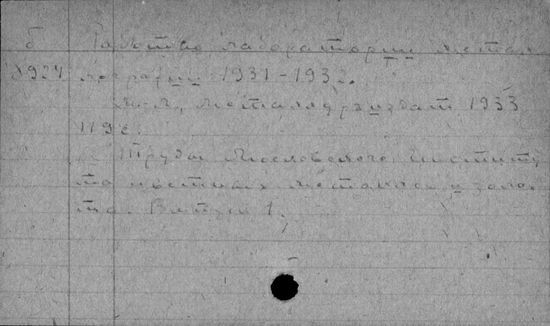 б Работы лаборатории метал
8924 лографии 1931-1932.
М.-Л., Металлургиздат 1933
119 с.
Труды Московского институ
та цветных металлов и золо
та. Выпуск 1.